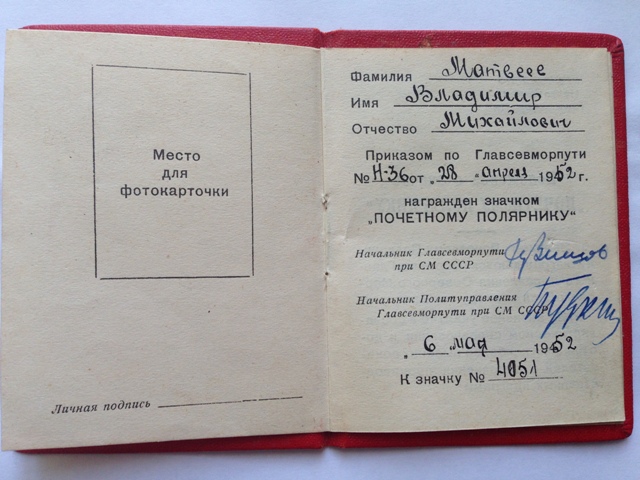 Место
для
фотокарточки
Личная подпись
Фамилия Матвеев
Имя Владимир
Отчество Михайлович
Приказом по Главсевморпути
№ Н-36 от „28“ апреля 1952 г.
награжден значком
„ПОЧЕТНОМУ ПОЛЯРНИКУ“
Начальник Главсевморпути
при СМ СССР
Начальник Политуправления
Главсевморпути при СМ СССР
„6“ мая 1952
К значку № 4051